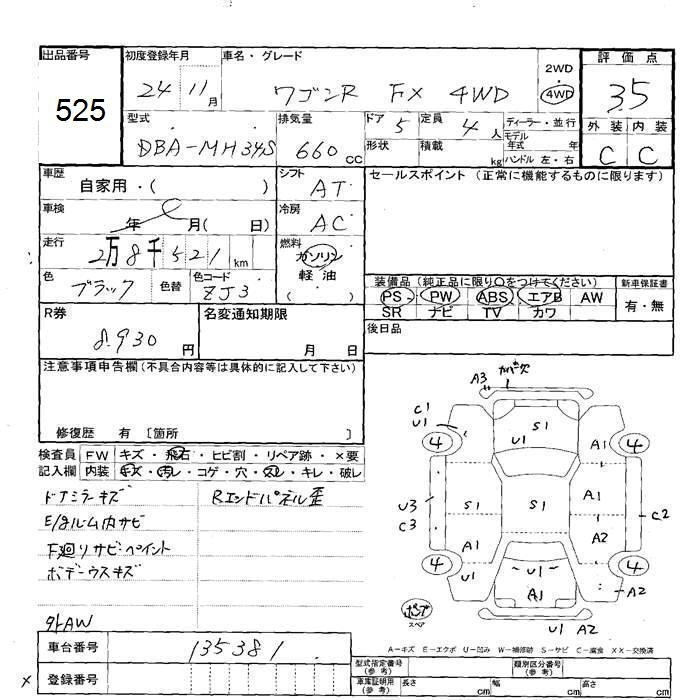 出品番号 初度登録年月 車名・グレード 評価点
525 24 11月 ワゴンR FX 4WD 2WD・4WD 3.5
型式 排気量 ドア 5 定員 4人 ディーラー・並行 外装 内装
DBA-MH34S 660cc 形状 積載 kg モデル年式 年 ハンドル 左・右 C C
車歴 シフト セールスポイント (正常に機能するものに限ります)
自家用・( ) AT
車検 年 月( 日) 冷房 AC
走行 2万8千521km 燃料 ガソリン
軽油
( )
色 ブラック 色替 色コード ZJ3
装備品(純正品に限り○をつけてください) 新車保証書
PS・PW ABS・エアB AW 有・無
SR ナビ TV カワ
R券 名変通知期限 後日品
8,930円 月 日
注意事項申告欄(不具合内容等は具体的に記入して下さい)
修復歴 有 [箇所 ]
検査員 FW キズ・飛石・ヒビ割・リペア跡・×要
記入欄 内装 キズ・汚れ・コゲ・穴・スレ・キレ・破レ
ドアミラーキズ Rエンドパネル歪
E/gルーム内サビ
F廻りサビ・ペイント
ボデーウスキズ
外AW
A3 カバー欠
C1
U1
4 U1 S1 A1 4
U3 S1 S1 A1 C2
C3 A1 A2
4 U1 U1 A1 4
A2
ポンプ
スペア
U1 A2
A-キズ E-エクボ U-凹み W-補修跡 S-サビ C-腐食 XX-交換済
車台番号 135381
× 登録番号
型式指定番号(参考) 類別区分番号(参考)
車庫証明用(参考) 長さ cm 幅 cm 高さ cm